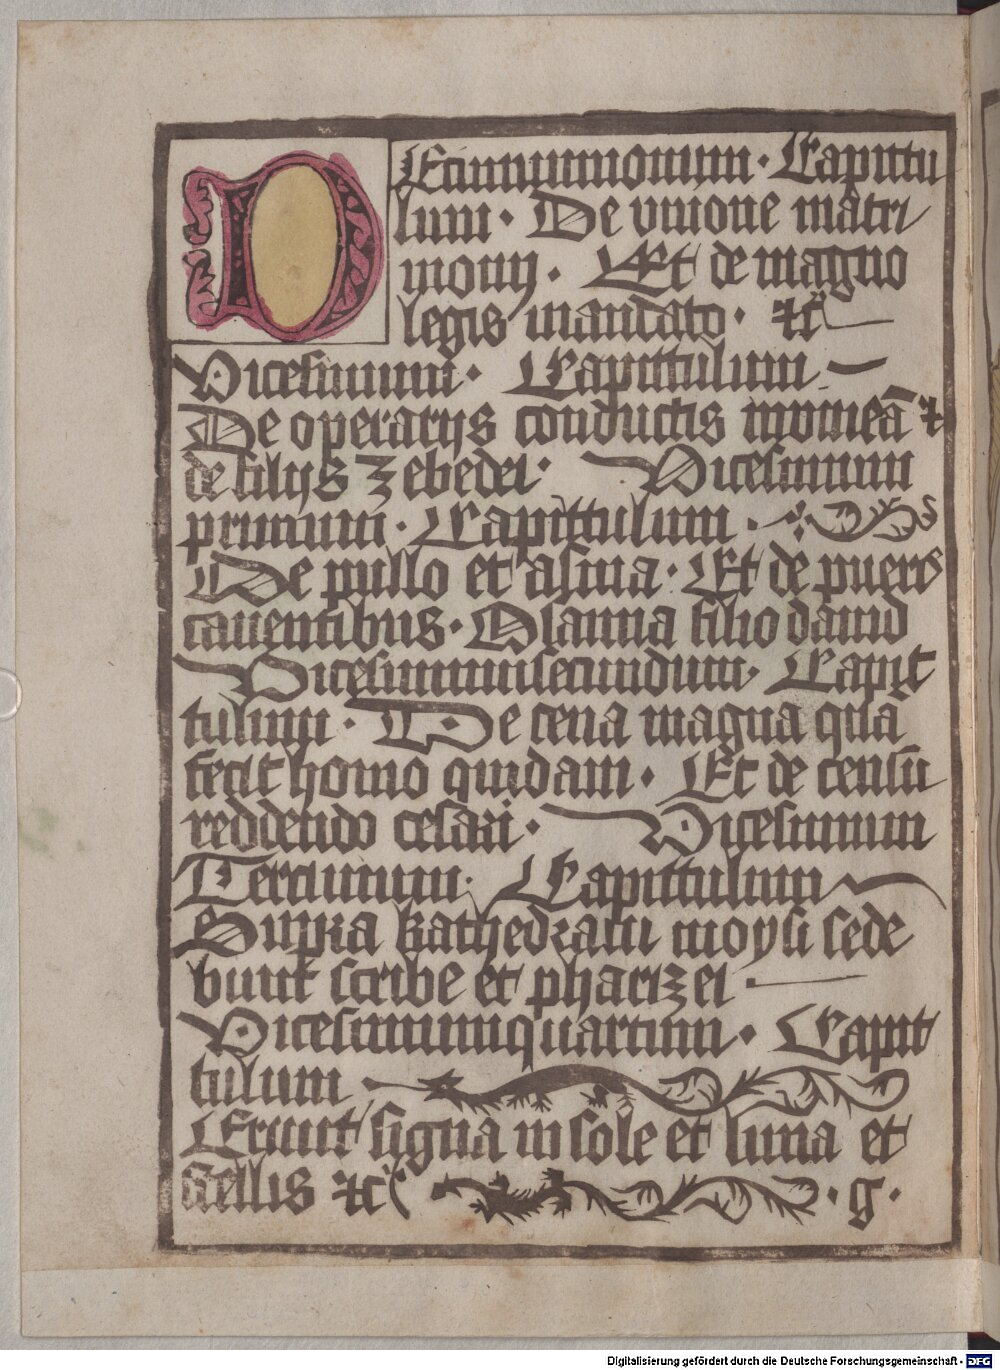 DEcimumnonum · Capittu
lum · De vnione matri
monij · Et de magno
legis mandato · ⁊c
Vicesimum · Capittulum
De operarijs conductis in vineā ⁊
de filijs zebedei · Vicesimum
primum · Capittulum ·
De pullo et asina · Et de pueris
canentibus · Osanna filio dauid
Vicesimumsecundum · Capit
tulum · De cena magna quā
fecit homo quidam · Et de censu
reddendo cesari · Vicesimum
Tercium · Capittulum
Supra kathedram moysi sede
bunt scribe et pharizei ·
Vicesimumquartum · Capit
tulum
Erunt signa in sole et luna et
stellis ⁊c · g ·
Digitalisierung gefördert durch die Deutsche Forschungsgemeinschaft - DFG